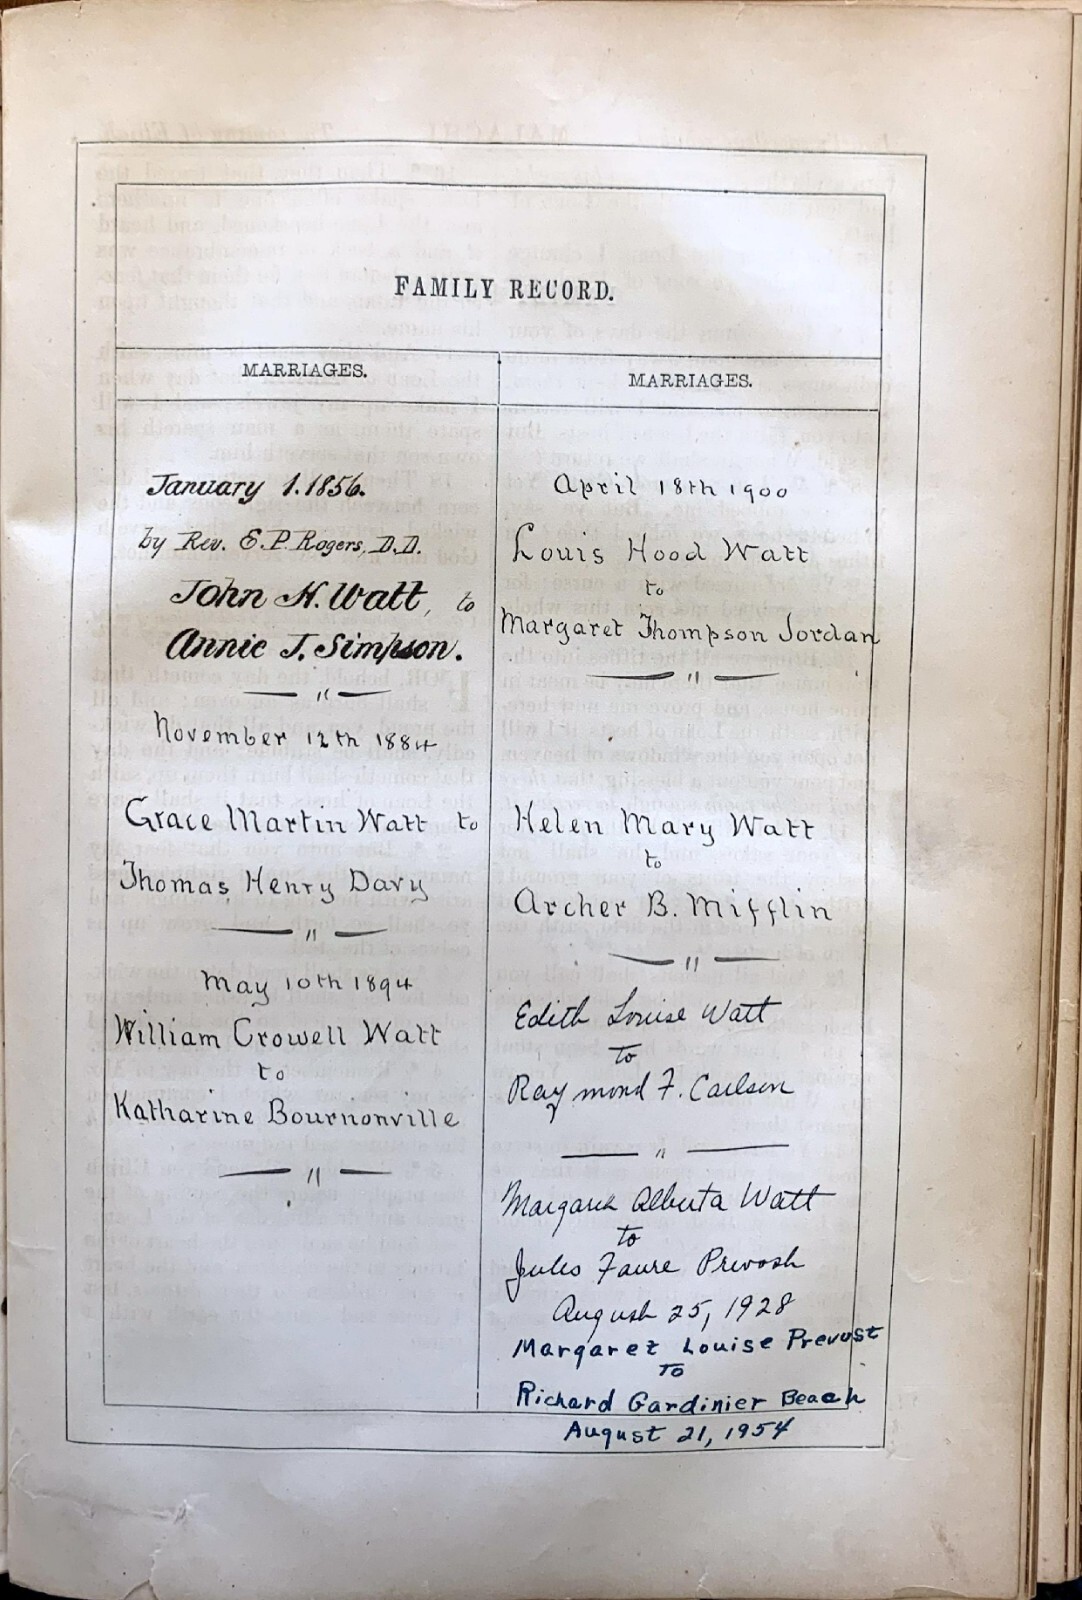 FAMILY RECORD.
MARRIAGES.
January 1. 1856.
by Rev. E. P. Rogers, D.D.
John H. Watt, to
Annie J. Simpson.
November 12th 1884
Grace Martin Watt to
Thomas Henry Davy
May 10th 1894
William Crowell Watt
to
Katharine Bournonville
MARRIAGES.
April 18th 1900
Louis Hood Watt
to
Margaret Thompson Jordan
Helen Mary Watt
to
Archer B. Mifflin
Edith Louise Watt
to
Raymond F. Carlson
Margaret Alberta Watt
to
Jules Faure Prevost
August 25, 1928
Margaret Louise Prevost
TO
Richard Gardinier Beach
August 21, 1954